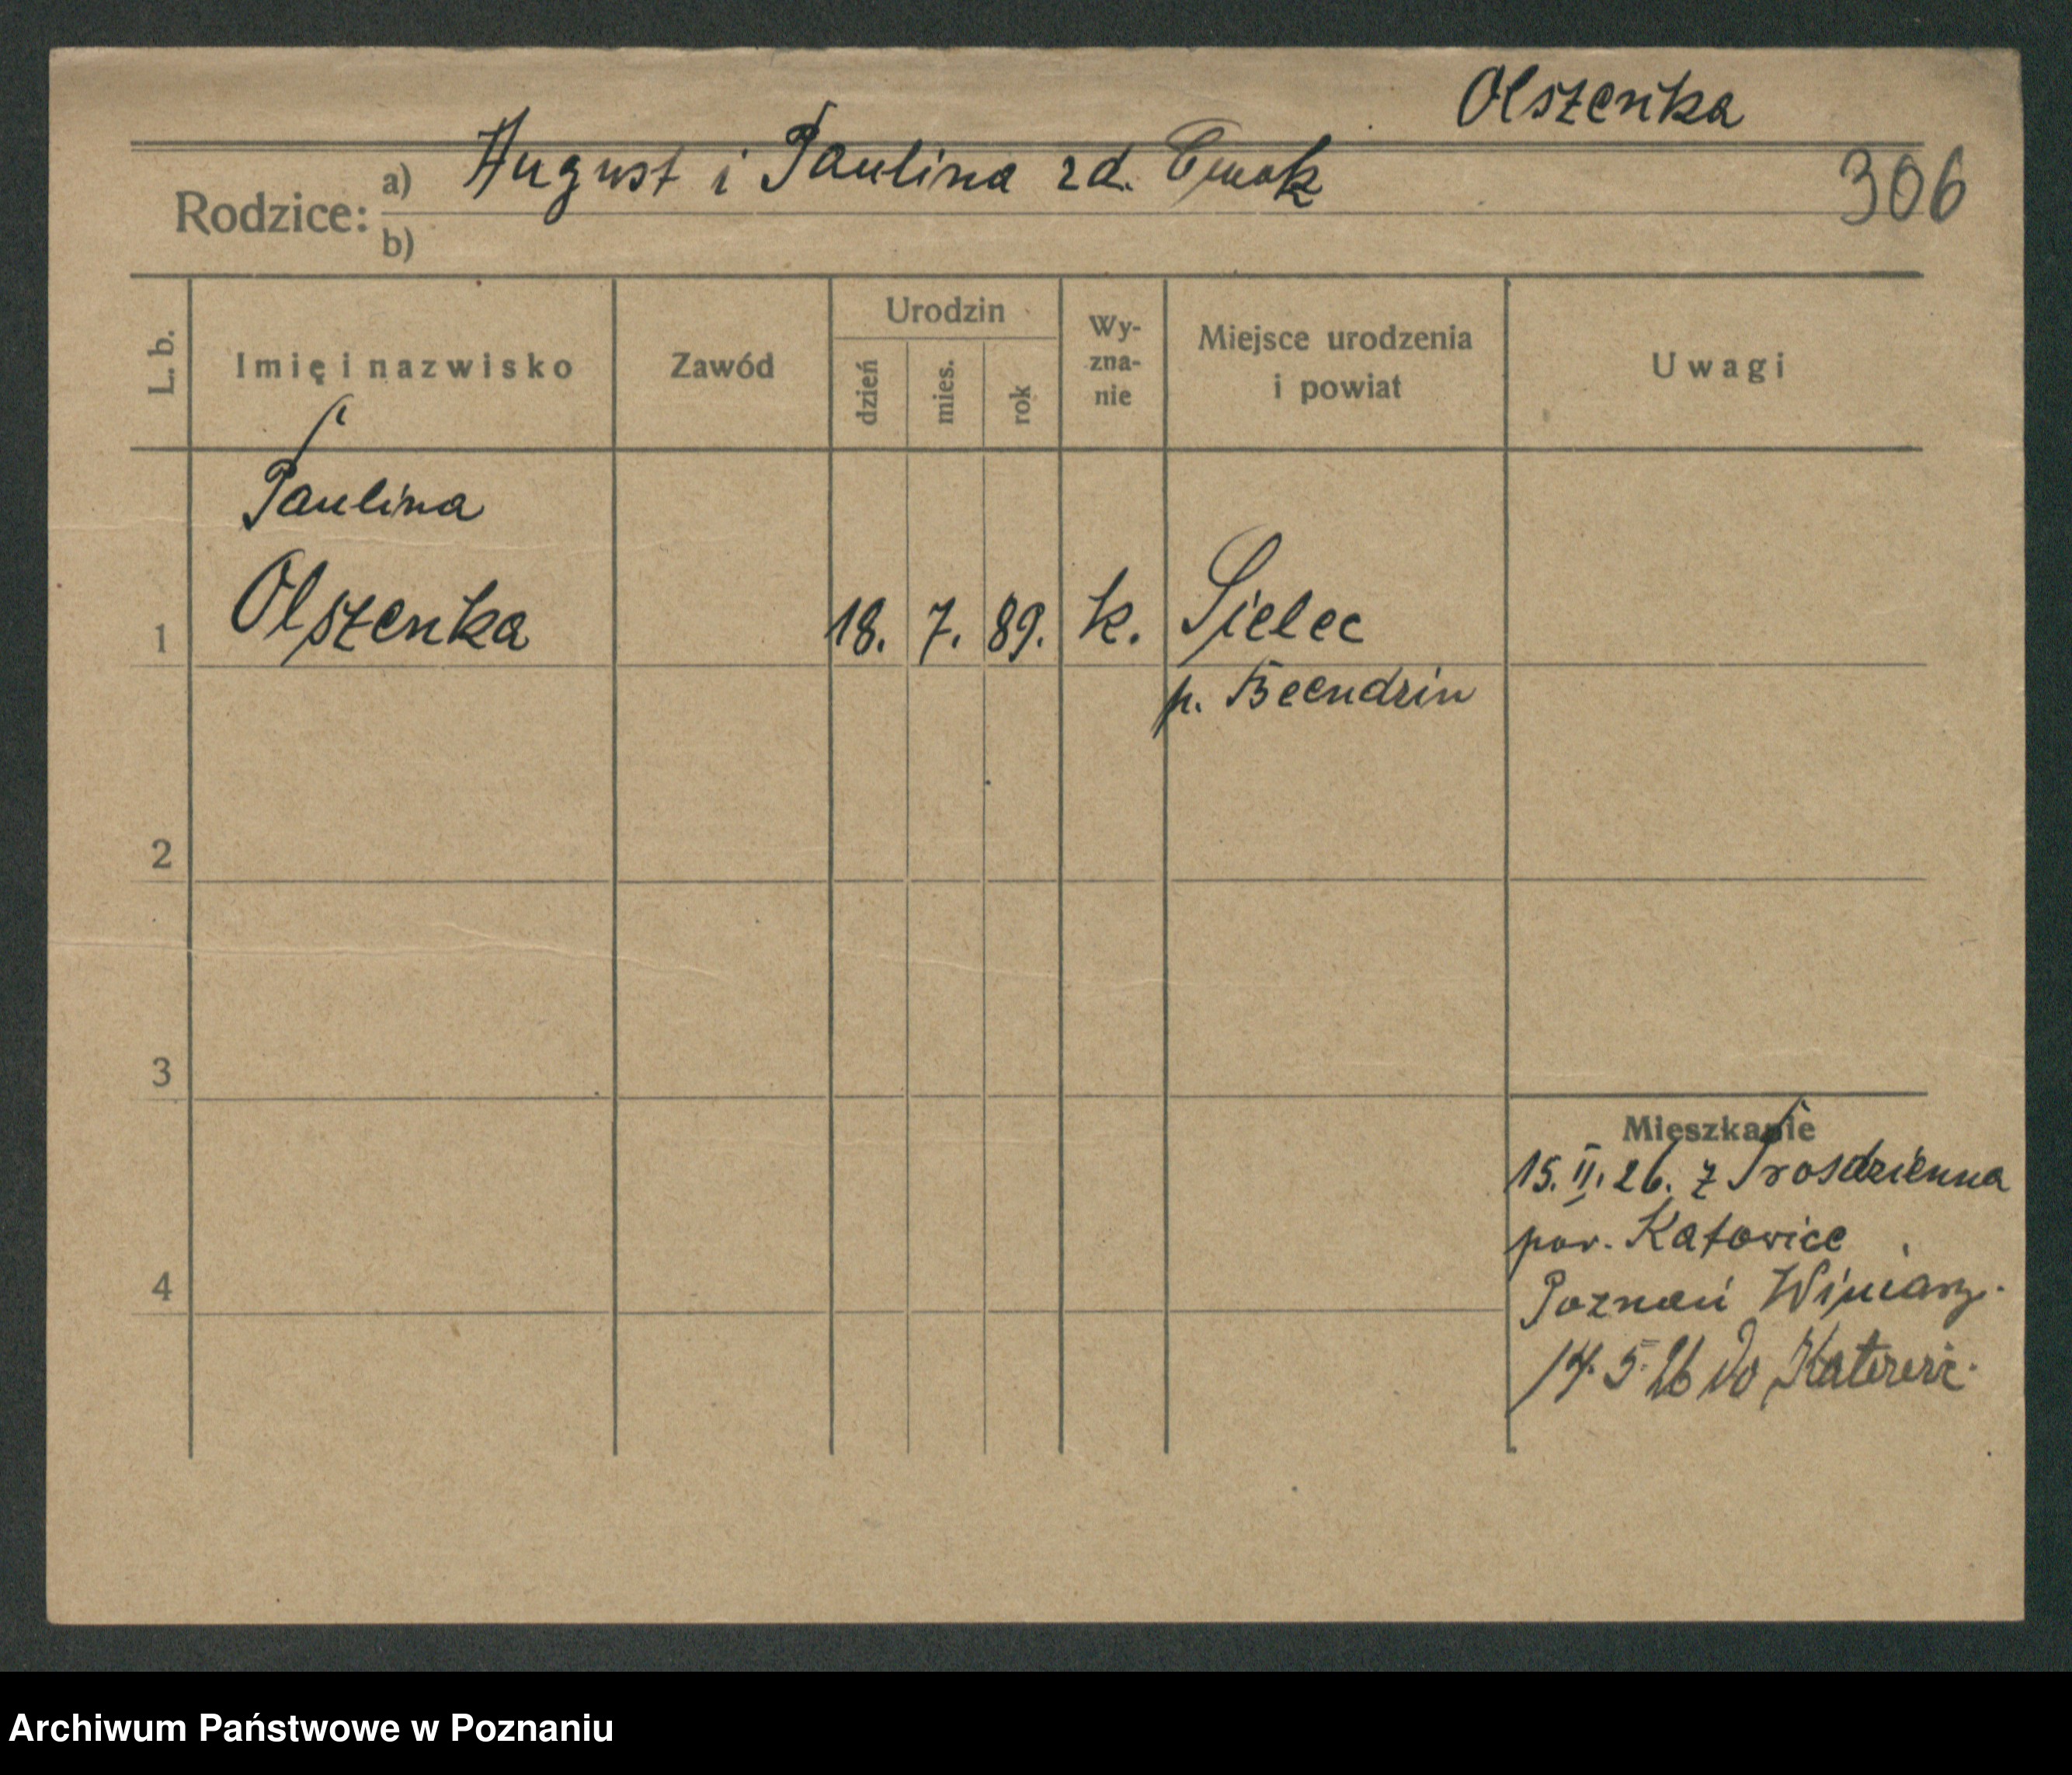 Olszenka
306
Rodzice: a) August i Paulina zd. Cmok
b)
L. b.
Imię i nazwisko
Zawód
Urodzin
dzień
mies.
rok
Wy-
zna-
nie
Miejsce urodzenia
i powiat
Uwagi
Paulina
1 Olszenka 18. 7. 89. k. Sielec
p. Beendzin
2
3
4
Mieszkanie
15. II. 26. z Rosdzienna
pow. Katowice
Poznań Winiary.
14. 5. 26 do Katowic.
Archiwum Państwowe w Poznaniu